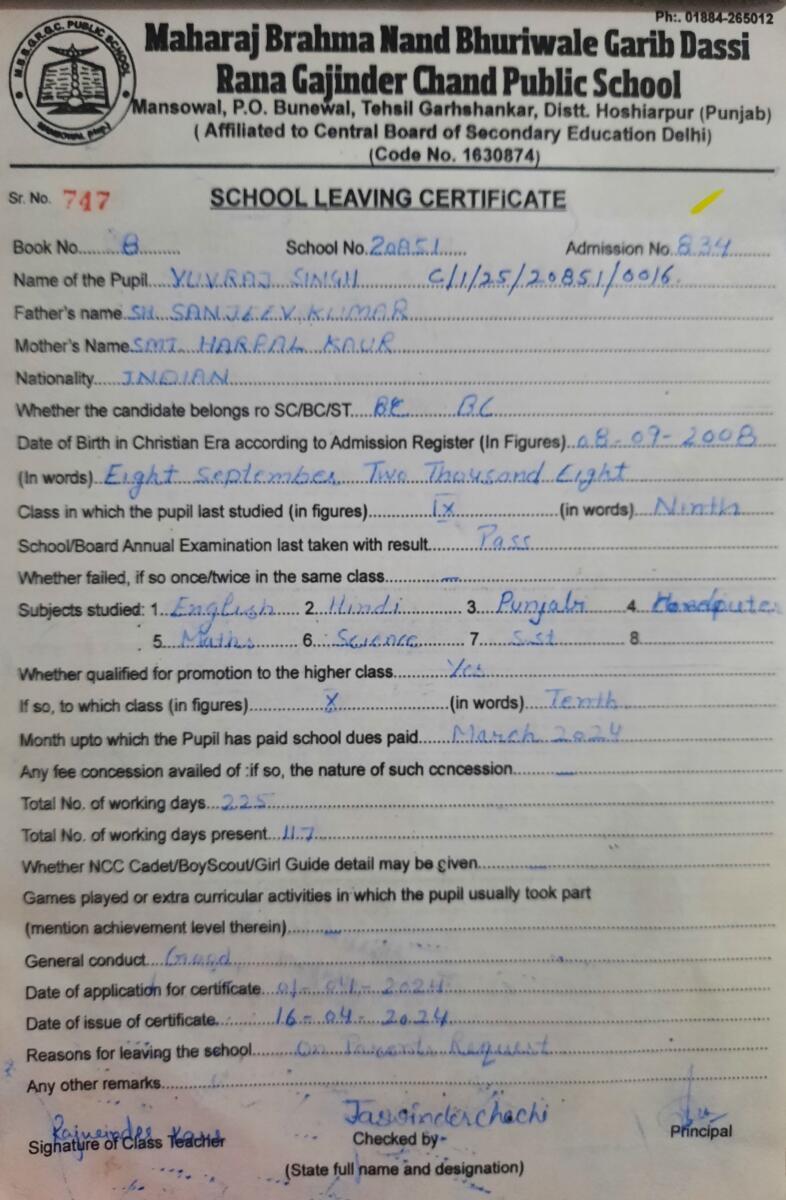 Ph:. 01884-265012
M.B.B.G.R.G.C. PUBLIC SCHOOL
Maharaj Brahma Nand Bhuriwale Garib Dassi
Rana Gajinder Chand Public School
Mansowal, P.O. Bunewal, Tehsil Garhshankar, Distt. Hoshiarpur (Punjab)
( Affiliated to Central Board of Secondary Education Delhi)
(Code No. 1630874)
Sr. No. 747 SCHOOL LEAVING CERTIFiCATE
Book No. 8 School No. 20851 Admission No. 834
Name of the Pupil YUVRAJ SINGH C/1/25/20851/0016.
Father's name SH. SANJEEV KUMAR
Mother's Name SMT. HARPAL KAUR
Nationality INDIAN
Whether the candidate belongs ro SC/BC/ST BC BC
Date of Birth in Christian Era according to Admission Register (In Figures) 08-09-2008
(In words) Eight September Two Thousand Eight
Class in which the pupil last studied (in figures) IX (in words) Ninth
School/Board Annual Examination last taken with result Pass
Whether failed, if so once/twice in the same class —
Subjects studied: 1. English 2. Hindi 3. Punjabi 4.
5. Maths 6. Science 7. S.st 8.
Whether qualified for promotion to the higher class Yes
If so, to which class (in figures) X (in words) Tenth
Month upto which the Pupil has paid school dues paid March 2024
Any fee concession availed of :if so, the nature of such concession —
Total No. of working days 225
Total No. of working days present 117
Whether NCC Cadet/BoyScout/Girl Guide detail may be given —
Games played or extra curricular activities in which the pupil usually took part
(mention achievement level therein) —
General conduct Good
Date of application for certificate 01-04-2024
Date of issue of certificate 16-04-2024
Reasons for leaving the school On Parents Request
Any other remarks
Rajwinder Kaur Jaswinder
Signature of Class Teacher Checked by- Principal
(State full name and designation)